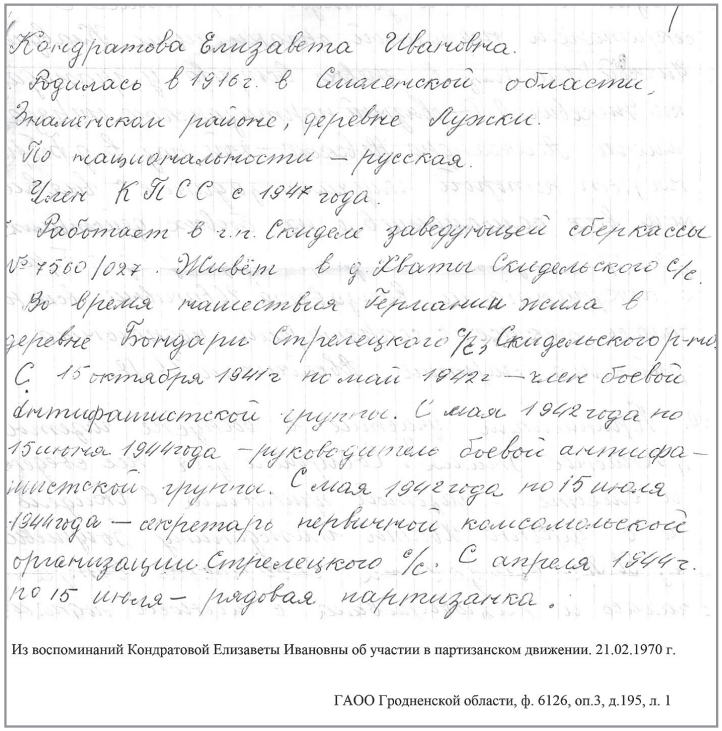 1
Кондратова Елизавета Ивановна.
Родилась в 1916 г. в Смоленской области,
Знаменском районе, деревне Лужки.
По национальности – русская.
Член КПСС с 1947 года.
Работает в г.п. Скиделе заведующей сберкассы
№ 7560/027. Живёт в д. Хваты Скидельского с/с.
Во время нашествия Германии жила в
деревне Бондари Стрелецкого с/с, Скидельского р-на.
С 15 октября 1941 г по май 1942 г – член боевой
антифашистской группы. С мая 1942 года по
15 июня 1944 года – руководитель боевой антифа-
шистской группы. С мая 1942 года по 15 июля
1944 года – секретарь первичной комсомольской
организации Стрелецкого с/с. С апреля 1944 г.
по 15 июля – рядовая партизанка.
Из воспоминаний Кондратовой Елизаветы Ивановны об участии в партизанском движении. 21.02.1970 г.
ГАОО Гродненской области, ф. 6126, оп.3, д.195, л. 1